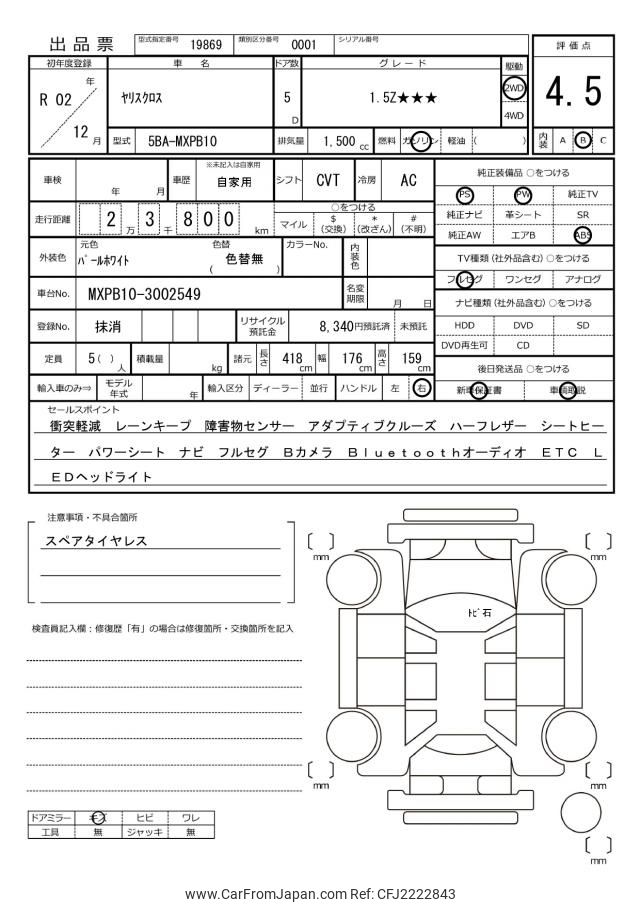 出品票 型式指定番号 19869 類別区分番号 0001 シリアル番号
評価点
4.5
内装 A B C
初年度登録 車名 ドア数 グレード 駆動
R 02 年 ヤリスクロス 5 D 1.5Z★★★ 2WD
4WD
12 月 型式 5BA-MXPB10 排気量 1,500 cc 燃料 ガソリン 軽油 ( )
車検 年 月 車歴 ※未記入は自家用 自家用 シフト CVT 冷房 AC
走行距離 2 万 3 千 8 0 0 km
○をつける
マイル $(交換) *(改ざん) #(不明)
外装色 元色 パールホワイト 色替 ( 色替無 ) カラーNo. 内装色
車台No. MXPB10-3002549 名変期限 月 日
登録No. 抹消 リサイクル預託金 8,340円預託済 未預託
定員 5 ( ) 人 積載量 kg 諸元 長さ 418 cm 幅 176 cm 高さ 159 cm
輸入車のみ⇒ モデル年式 年 輸入区分 ディーラー 並行 ハンドル 左 右
純正装備品 ○をつける
PS PW 純正TV
純正ナビ 革シート SR
純正AW エアB ABS
TV種類(社外品含む) ○をつける
フルセグ ワンセグ アナログ
ナビ種類(社外品含む) ○をつける
HDD DVD SD
DVD再生可 CD
後日発送品 ○をつける
新車保証書 車輌取説
セールスポイント
衝突軽減 レーンキープ 障害物センサー アダプティブクルーズ ハーフレザー シートヒー
ター パワーシート ナビ フルセグ Bカメラ Bluetoothオーディオ ETC L
EDヘッドライト
注意事項・不具合箇所
スペアタイヤレス
検査員記入欄:修復歴「有」の場合は修復箇所・交換箇所を記入
mm
mm
トビ石
mm
mm
mm
ドアミラー キズ ヒビ ワレ
工具 無 ジャッキ 無
www.CarFromJapan.com Ref: CFJ2222843